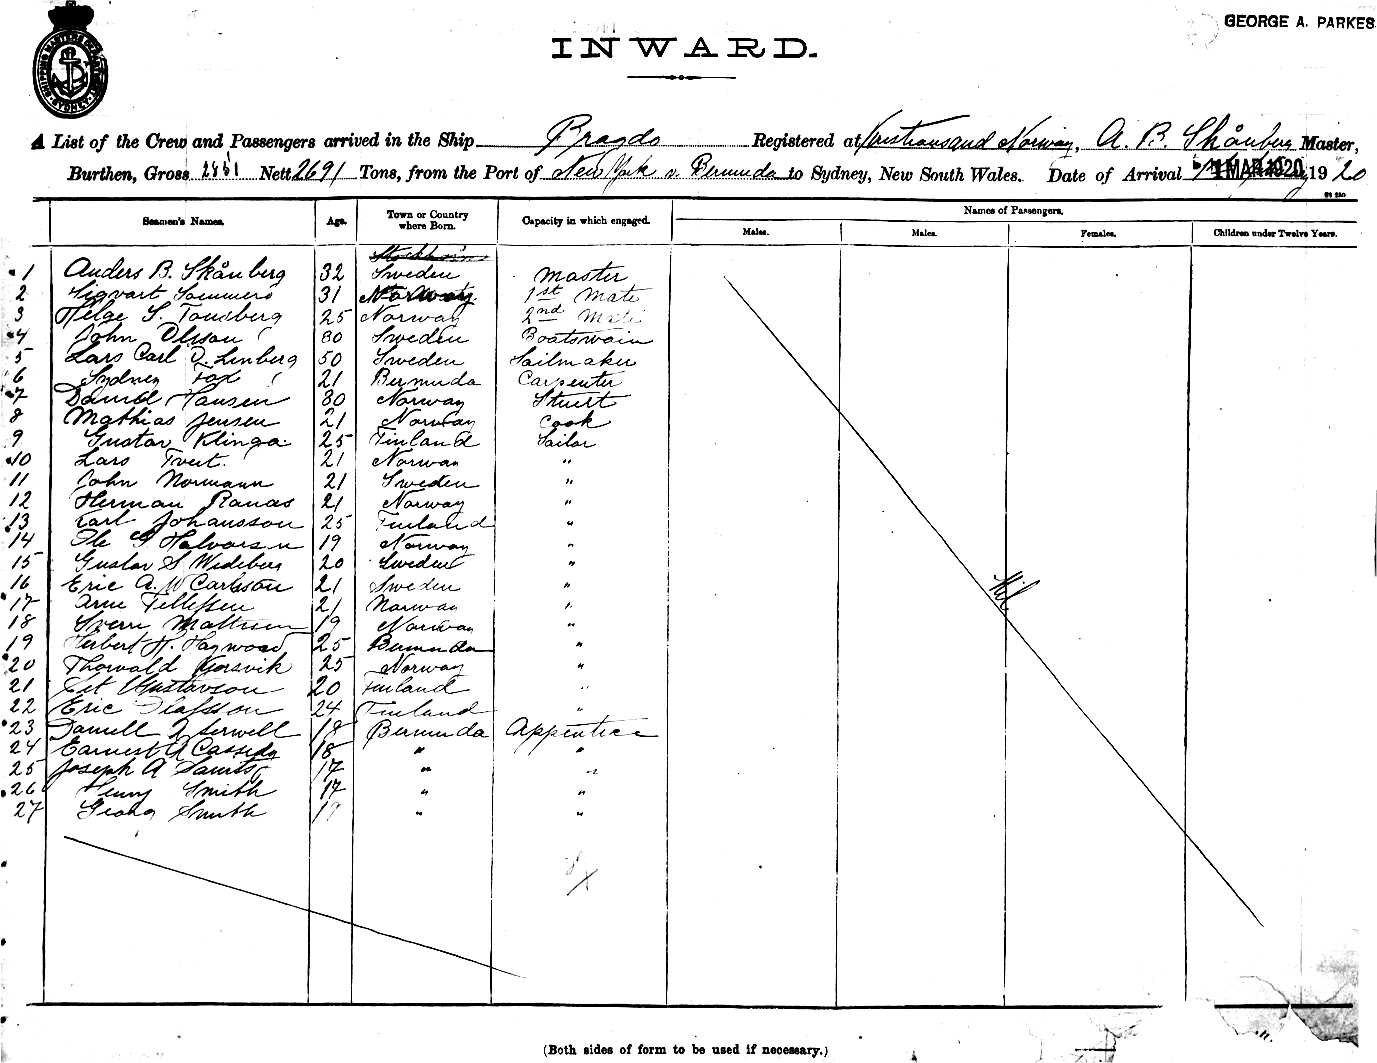 GEORGE A. PARKES
SHIPPING MASTERS DEPARTMENT SYDNEY
INWARD.
A List of the Crew and Passengers arrived in the Ship Bragdo Registered at Kristiansand Norway, A. B. Skånberg Master,
Burthen, Gross 2861 Nett 2691 Tons, from the Port of New York v. Bermuda to Sydney, New South Wales. Date of Arrival 1 MAR 1920 1920
Seamen's Names. Age. Town or Country where Born. Capacity in which engaged. Names of Passengers.
Males. Males. Females. Children under Twelve Years.
Stockholm
1 Anders B. Skånberg 32 Sweden Master
2 Sigvart 31 Norway 1st Mate
3 Helge S. Tondberg 25 Norway 2nd Mate
4 John Olsson 30 Sweden Boatswain
5 Lars Carl Q. Linberg 50 Sweden Sailmaker
6 Sydney Fox 21 Bermuda Carpenter
7 Daniel Hansen 30 Norway Stuert
8 Mathias Jensen 21 Norway Cook
9 Gustav Klinga 25 Finland Sailor
10 Lars Tveit. 21 Norway "
11 John Normann 21 Sweden "
12 Herman Ranas 21 Norway "
13 Karl Johansson 25 Finland "
14 Ole Halvorsen 19 Norway "
15 Gustav S Wedeberg 20 Sweden "
16 Eric A. W Carlsson 21 Sweden "
17 Arne Tellefsen 21 Norway "
18 Sverre Mattisen 19 Norway "
19 Herbert H. Haywood 25 Bermuda "
20 Thorvald Kjosvik 25 Norway "
21 Gustavson 20 Finland "
22 Eric Olafsson 24 Finland "
23 Daniell 18 Bermuda Apprentice
24 Earnest A Cassidy 18 " "
25 Joseph A 17 " "
26 Henry Smith 17 " "
27 Georg Smith 17 " "
Nil
(Both sides of form to be used if necessary.)